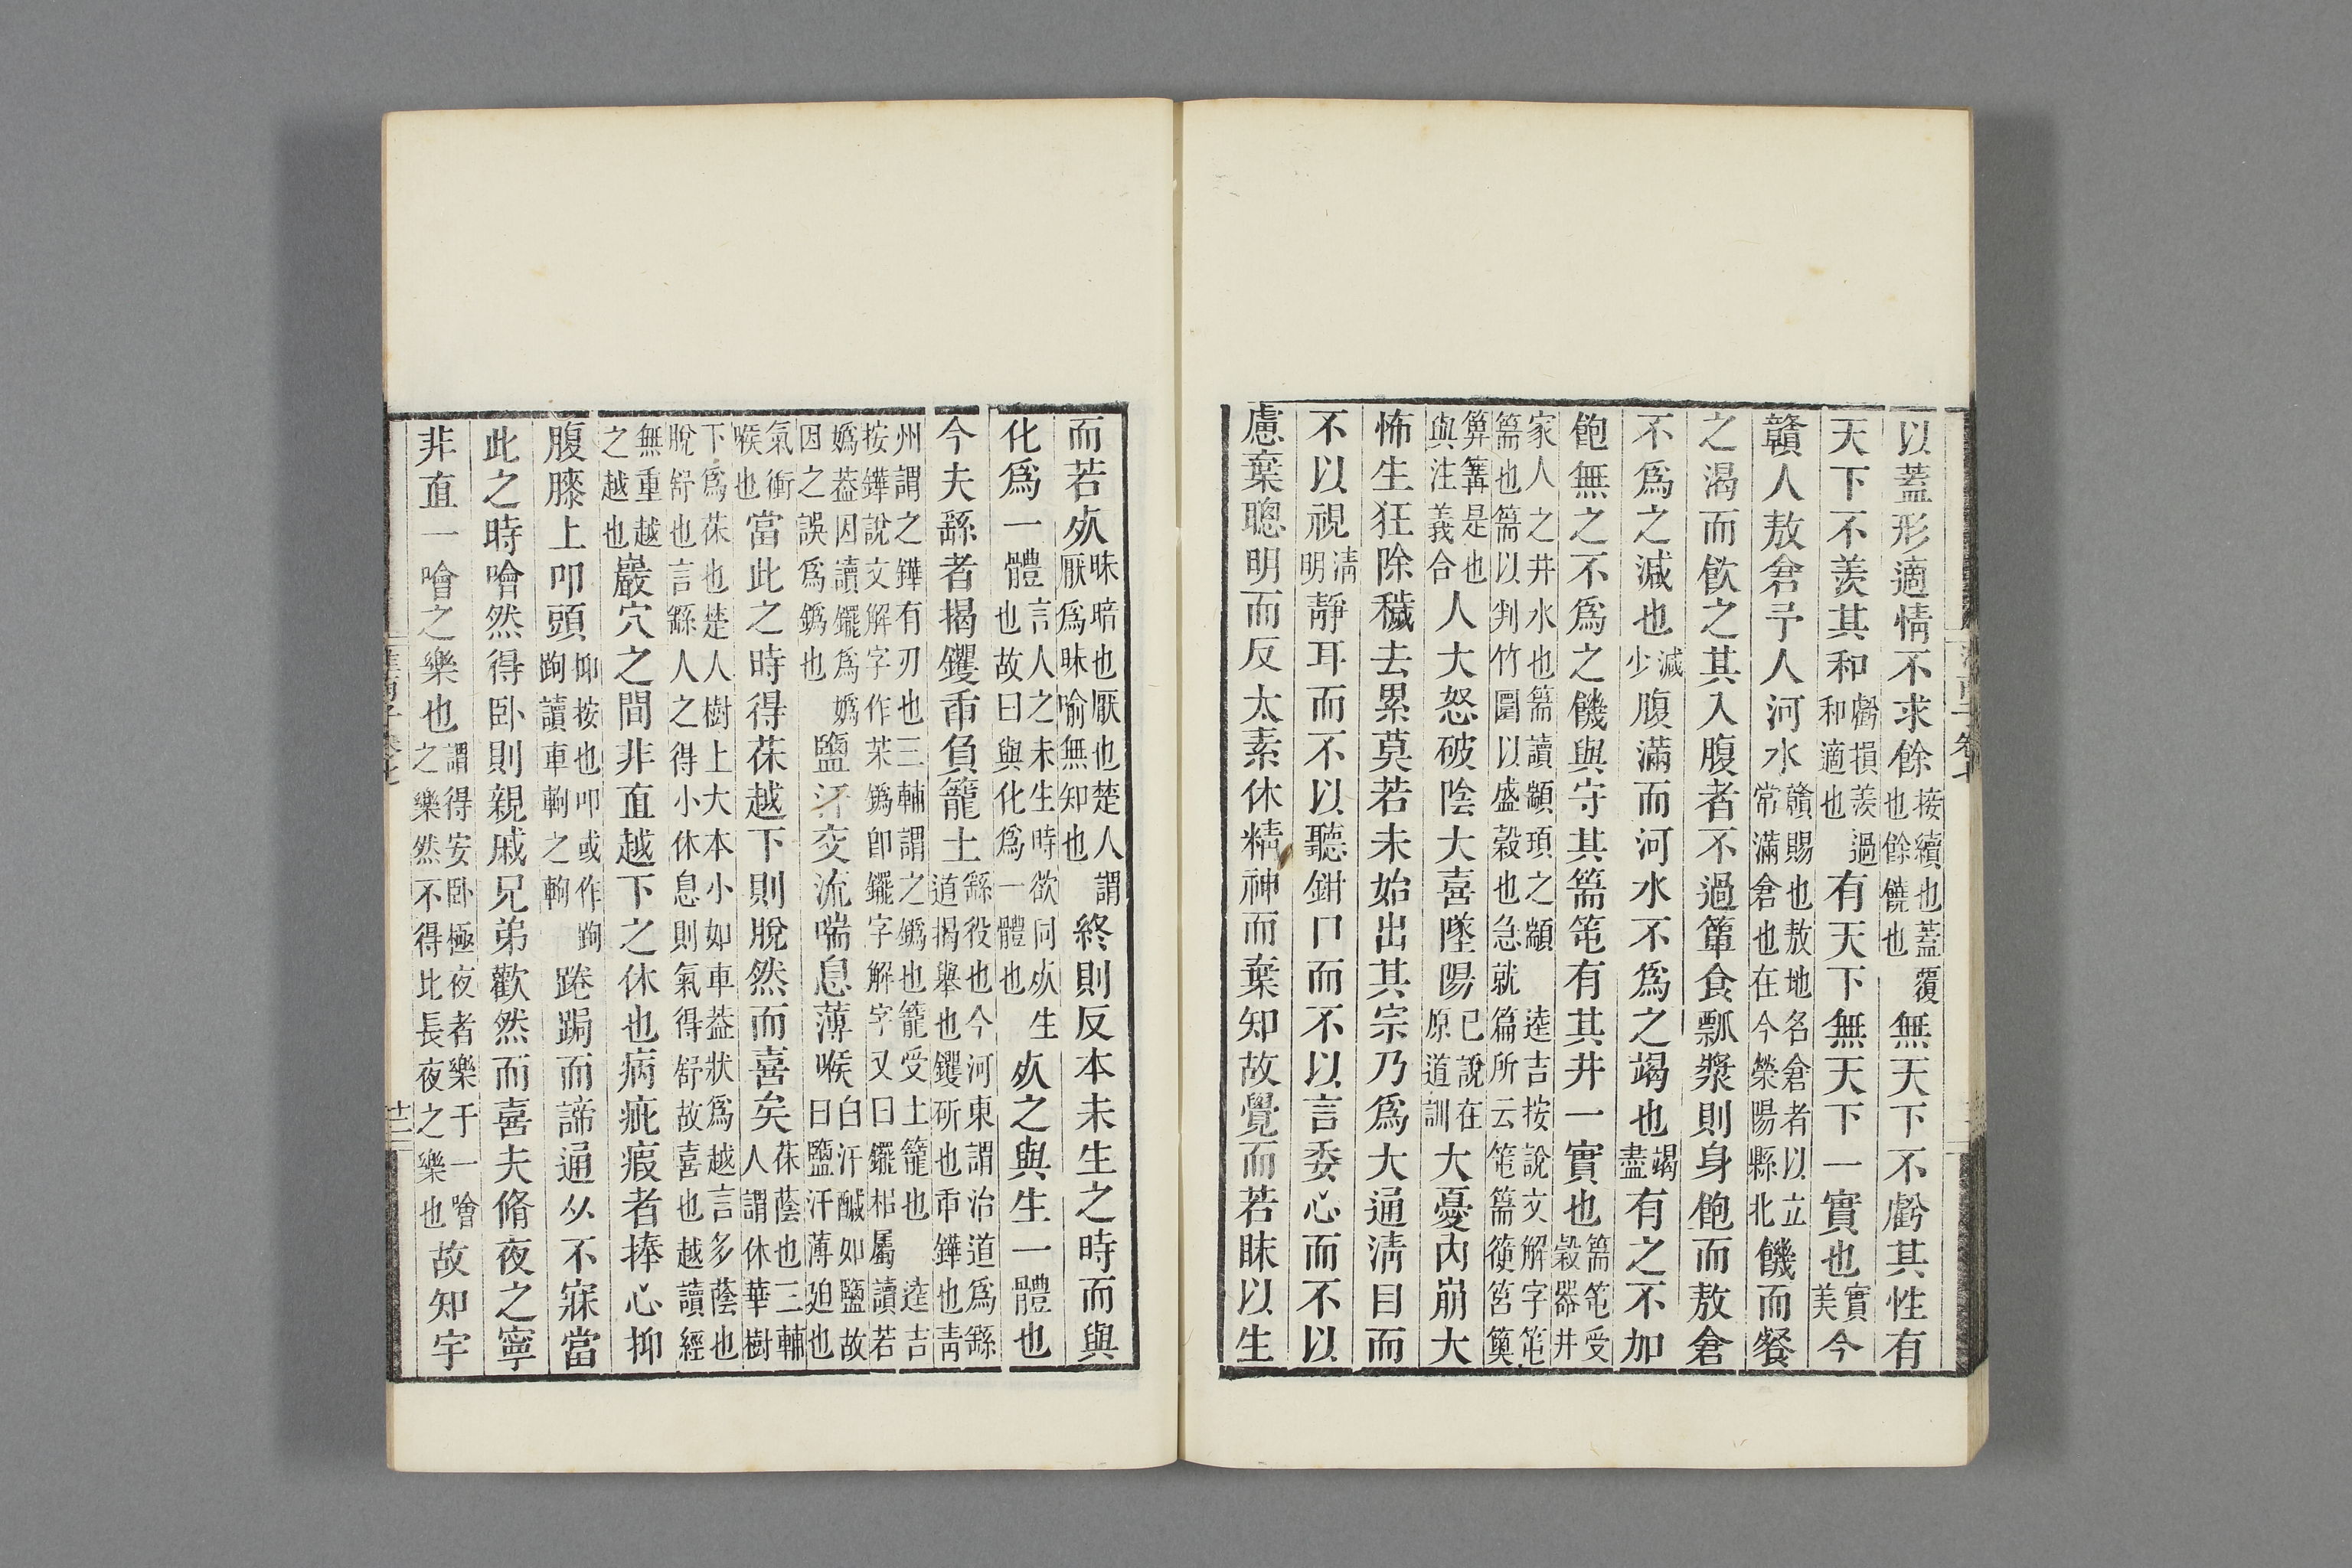 以蓋形適情不求餘接續也蓋覆也餘饒也無天下不虧其性有
天下不羨其和虧損羨過和適也有天下無天下一實也實美今
贛人敖倉予人河水贛賜也敖地名倉者以立常滿倉也在今滎陽縣北饑而餐
之渴而飲之其入腹者不過簞食瓢漿則身飽而敖倉
不爲之減也減少腹滿而河水不爲之竭也竭盡有之不加
飽無之不爲之饑與守其篅䇪有其井一實也篅䇪受穀器井
家人之井水也篅讀顓頊之顓 逵吉按說文解字䇪篅也篅以判竹圜以盛穀也急就篇所云䇪篅箯筥䉛
箅篝是也與注義合人大怒破陰大喜墜陽已說在原道訓大憂內崩大
怖生狂除穢去累莫若未始出其宗乃爲大通淸目而
不以視淸明靜耳而不以聽鉗口而不以言委心而不以
慮棄聰明而反太素休精神而棄知故覺而若眛以生
而若㱙眛暗也厭也楚人謂厭爲眛喻無知也終則反本未生之時而與
化爲一體言人之未生時欲同㱙生也故曰與化爲一體也㱙之與生一體也
今夫繇者揭钁臿負籠土繇役也今河東謂治道爲繇道揭舉也钁斫也臿鏵也靑
州謂之鏵有刃也三輔謂之鎷也籠受土籠也 逵吉按鏵說文解字作茉鎷卽鑺字解字又曰鑺枱屬讀若
嬀葢因讀鑺爲嬀因之誤爲鎷也鹽汗交流喘息薄喉白汗鹹如鹽故曰鹽汗薄迫也
氣衝喉也當此之時得茠越下則脫然而喜矣茠蔭也三輔人謂休華樹
下爲茠也楚人樹上大本小如車葢狀爲越言多蔭也脫舒也言繇人之得小休息則氣得舒故喜也越讀經
無重越之越也巖穴之間非直越下之休也病疵瘕者捧心抑
腹膝上叩頭抑按也叩或作跔跔讀車軥之軥踡跼而諦通夕不寐當
此之時噲然得臥則親戚兄弟歡然而喜夫脩夜之寧
非直一噲之樂也謂得安臥極夜者樂于一噲之樂然不得比長夜之樂也故知宇